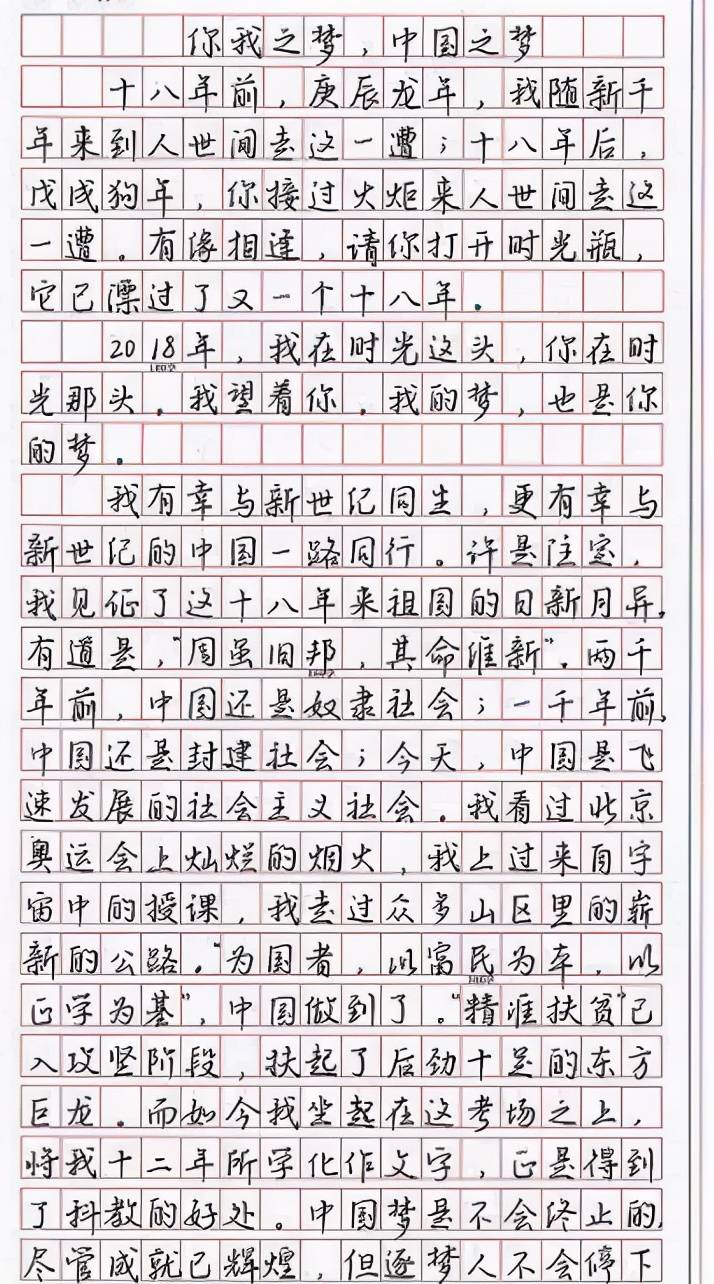 你我之梦，中国之梦
十八年前，庚辰龙年，我随新千
年来到人世间走这一遭；十八年后，
戊戌狗年，你接过火炬来人世间走这
一遭。有缘相逢，请你打开时光瓶，
它已漂过了又一个十八年。
2018年，我在时光这头，你在时
光那头。我望着你。我的梦，也是你
的梦。
我有幸与新世纪同生，更有幸与
新世纪的中国一路同行。许是注定，
我见证了这十八年来祖国的日新月异。
有道是，“周虽旧邦，其命维新”。两千
年前，中国还是奴隶社会；一千年前，
中国还是封建社会；今天，中国是飞
速发展的社会主义社会。我看过北京
奥运会上灿烂的烟火，我上过来自宇
宙中的授课，我走过众多山区里的崭
新的公路。“为国者，以富民为本，以
正学为基”，中国做到了。“精准扶贫”已
入攻坚阶段，扶起了后劲十足的东方
巨龙。而如今我坐起在这考场之上，
将我十二年所学化作文字，正是得到
了科教的好处。中国梦是不会终止的，
尽管成就已辉煌，但逐梦人不会停下